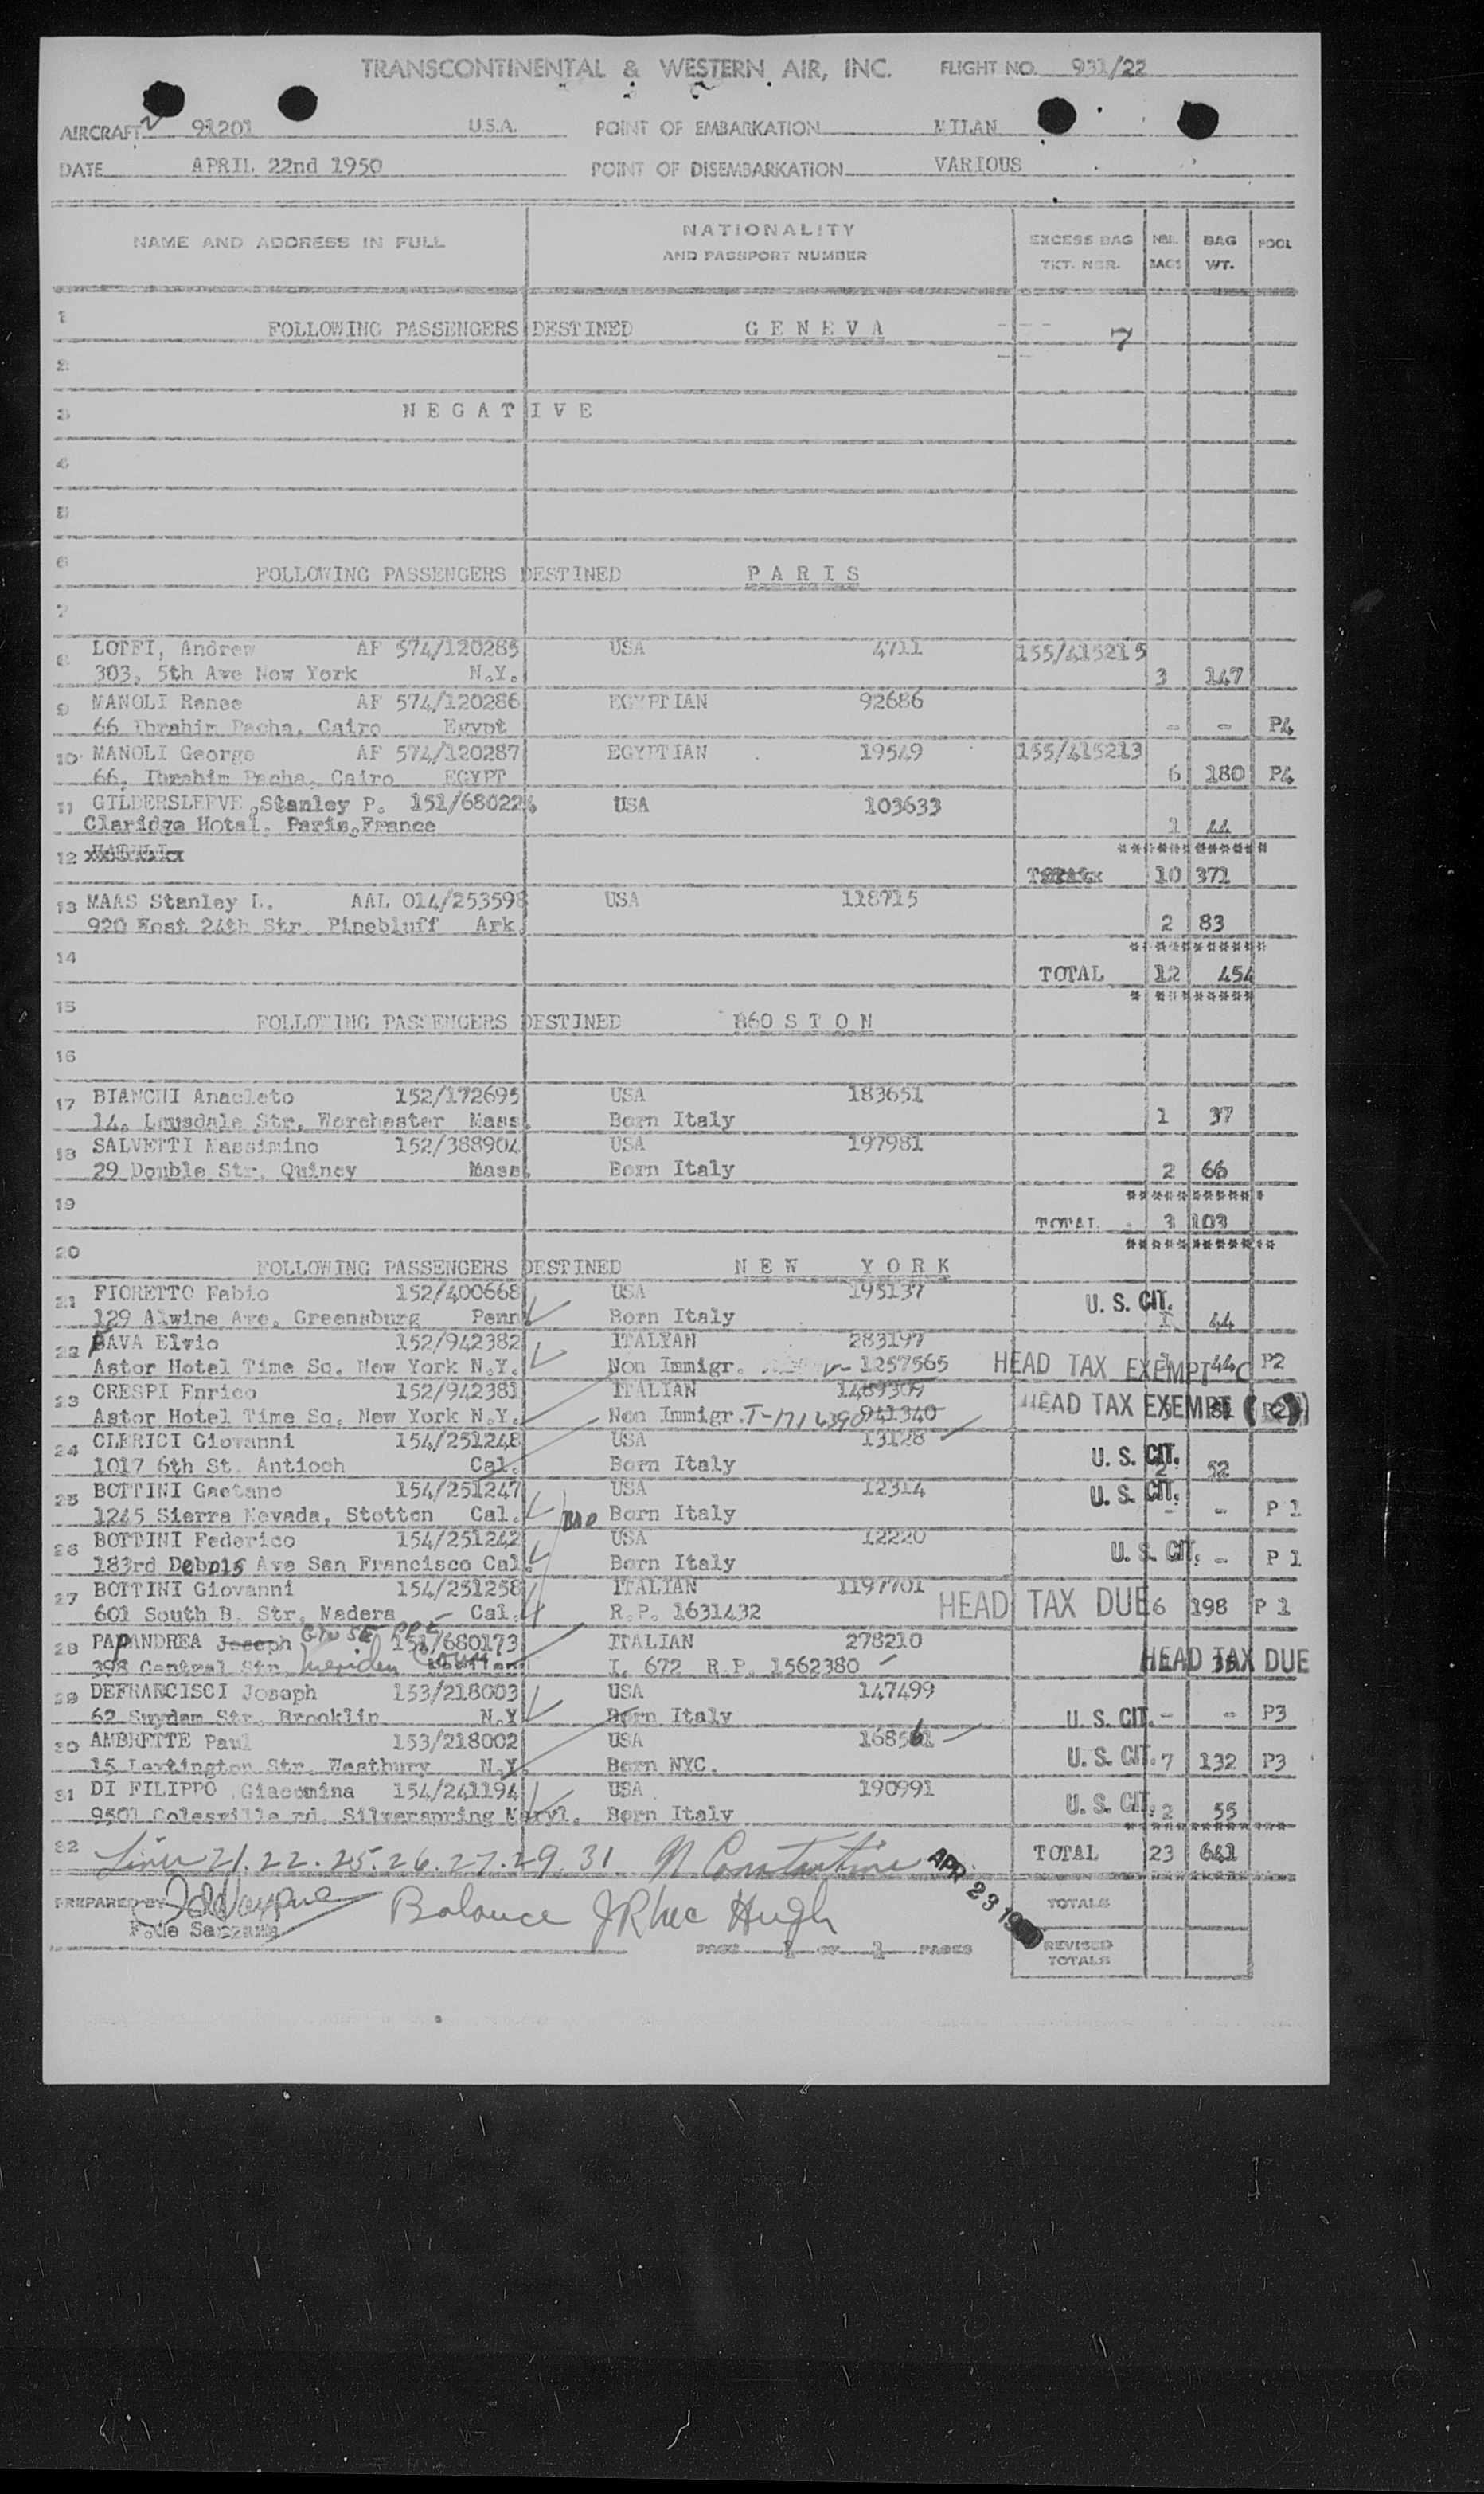 TRANSCONTINENTAL & WESTERN AIR, INC. FLIGHT NO. 931/22
AIRCRAFT 91201 U.S.A. POINT OF EMBARKATION MILAN
DATE APRIL 22nd 1950 POINT OF DISEMBARKATION VARIOUS
NAME AND ADDRESS IN FULL NATIONALITY AND PASSPORT NUMBER EXCESS BAG TKT. NBR. NBR. BAGS BAG WT. POOL
1 FOLLOWING PASSENGERS DESTINED G E N E V A 7
2
3 N E G A T I V E
4
5
6 FOLLOWING PASSENGERS DESTINED P A R I S
7
8 LOTFI, Andrew AF 574/120285 USA 4711 155/415215
303, 5th Ave New York N.Y. 3 147
9 MANOLI Renee AF 574/120286 EGYPTIAN 92686
66 Ibrahim Pacha, Cairo Egypt - - P4
10 MANOLI George AF 574/120287 EGYPTIAN 19549 155/415213
66, Ibrahim Pacha, Cairo EGYPT 6 180 P4
11 GILDERSLEEVE, Stanley P. 151/680224 USA 103633
Claridge Hotel, Paris, France 1 44
12 10 371
13 MAAS Stanley L. AAL 014/253598 USA 118715
920 West 24th Str. Pinebluff Ark. 2 83
14 TOTAL 12 454
15 FOLLOWING PASSENGERS DESTINED B6O S T O N
16
17 BIANCHI Anacleto 152/172695 USA 183651
14. Lousdale Str, Worchester Mass. Born Italy 1 37
18 SALVETTI Massimino 152/388904 USA 197981
29 Double Str, Quincy Mass. Born Italy 2 66
19 TOTAL 3 103
20 FOLLOWING PASSENGERS DESTINED N E W Y O R K
21 FIORETTO Fabio 152/400668 USA 195137 U. S. CIT.
129 Alwine Ave, Greensburg Penn Born Italy 1 44
22 FAVA Elvio 152/942382 ITALYAN 283197
Astor Hotel Time Sq. New York N.Y. Non Immigr. V-1257565 HEAD TAX EXEMPT 44 P2
23 CRESPI Enrico 152/942381 ITALIAN 1489309
Astor Hotel Time Sq. New York N.Y. Non Immigr. T-1716390 941340 HEAD TAX EXEMPT
24 CLERICI Giovanni 154/251248 USA 13128
1017 6th St. Antioch Cal. Born Italy U. S. CIT. 2 52
25 BOTTINI Gaetano 154/251247 USA 12314 U. S. CIT.
1245 Sierra Nevada, Stotton Cal. Born Italy - - P 1
26 BOTTINI Federico 154/251242 USA 12220
183rd Debois Ave San Francisco Cal. Born Italy U. S. CIT. - P 1
27 BOTTINI Giovanni 154/251258 ITALIAN 1197701
601 South B. Str, Madera Cal. R.P. 1631432 HEAD TAX DUE 6 198 P 1
28 PAPANDREA Joseph GIUSEPPE 151/680173 ITALIAN 278210
398 Central Str Meriden Conn I. 672 R.P. 1562380 HEAD TAX DUE
29 DEFRANCISCI Joseph 153/218003 USA 147499
62 Suydam Str. Brooklin N.Y. Born Italy U. S. CIT. - - P3
30 AMBRETTE Paul 153/218002 USA 168561
15 Lextington Str. Westbury N.Y. Born NYC. U. S. CIT. 7 132 P3
31 DI FILIPPO Giacomina 154/241194 USA 190991
9501 Colesville rd. Silverspring Maryl. Born Italy U. S. CIT. 2 55
32 Line 21.22.25.26.27.29.31 N Constantine TOTAL 23 641
APR 23
PREPARED BY Balance J R Mc Hugh TOTALS
F.de Sarzana
PAGE 1 OF 1 PAGES REVISED TOTALS